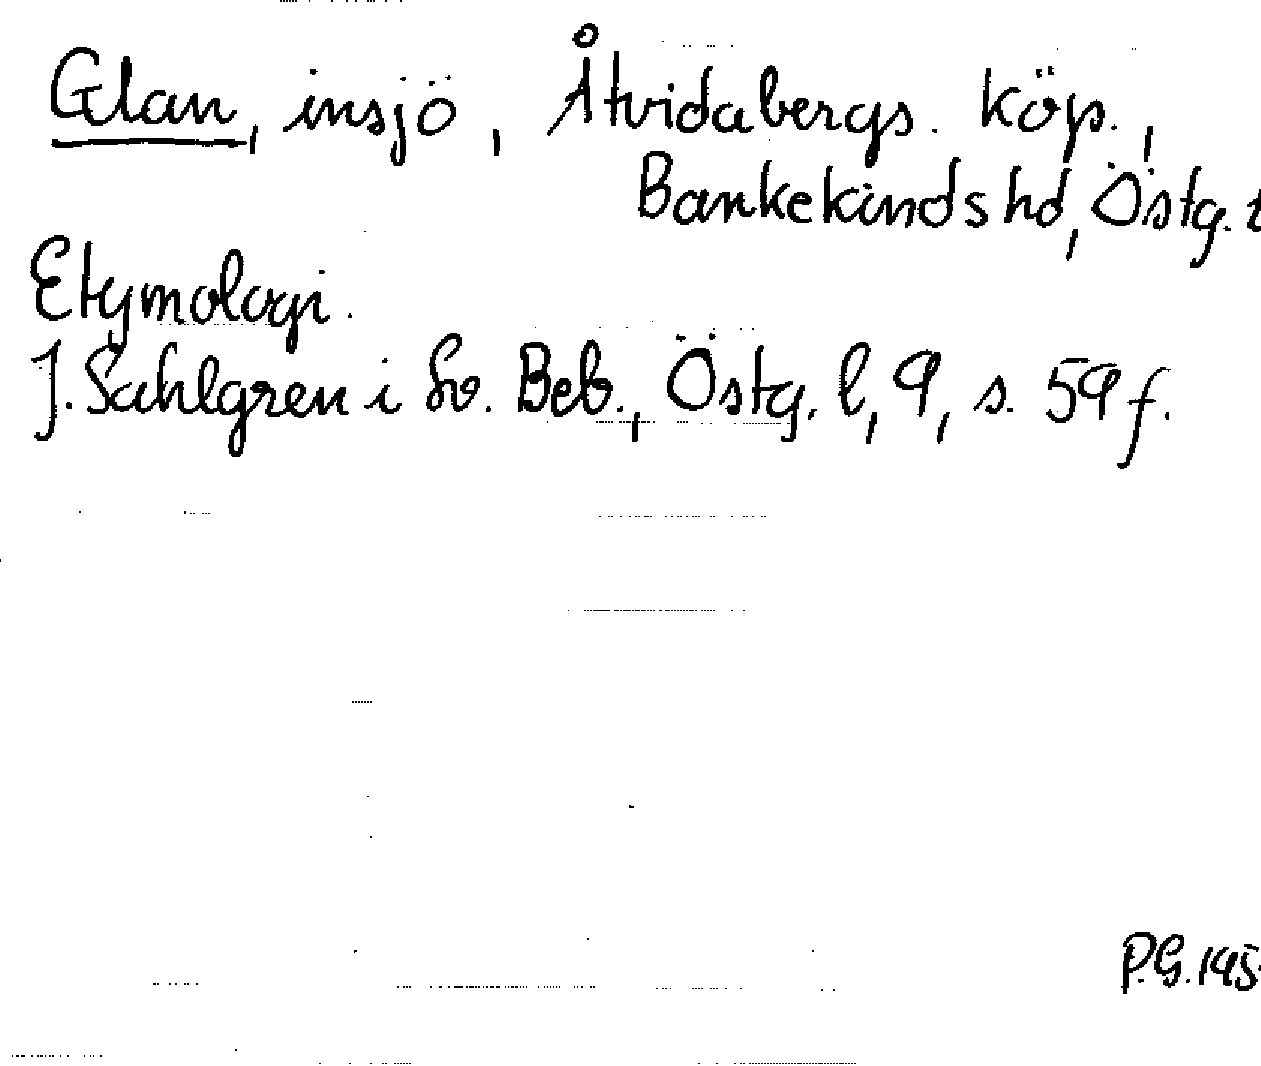 Glan, insjö, Åtvidabergs köp.,
Bankekinds hd, Östg. l
Etymologi.
J. Sahlgren i Sv. Beb., Östg. l, 9, s. 59 f.
P.G. 145